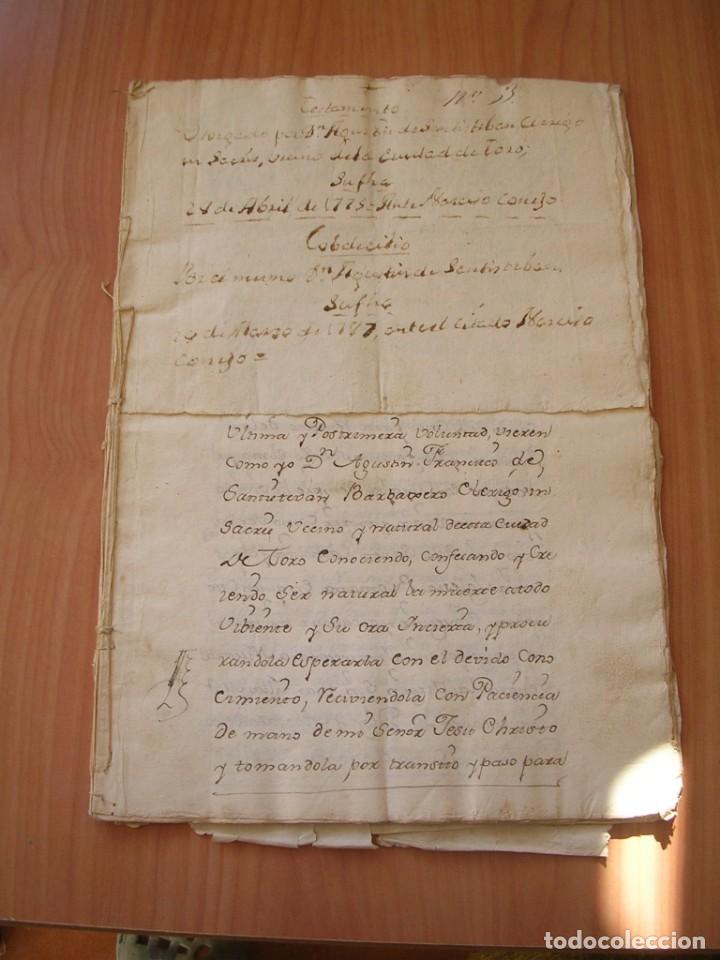 Testamento
Otorgado por Dn Agustin de Santisteban Clerigo
in Sacris, vecino de la Ciudad de Toro;
Su fha
28 de Abril de 1775 Ante Narciso Conejo
Cobdecilio
Por el mismo Dn Agustin de Santisteban,
Su fha
de Marzo de 1787, ante el citado Narciso
Conejo =
Ultima y Postrimera Voluntad, vieren
como yo Dn Agustin Francisco de
Santistevan Clerigo in
Sacris Vecino y natural de esta Ciudad
de Toro Conociendo, confesando y Cre
iendo Ser natural la muerte a todo
Vibiente y Su Ora Incierta, y procu
randola esperarla con el devido Cono
cimiento, reciviendola con Paciencia
de mano de mi Señor Jesu Christo
y tomandola por transito y paso para
todocoleccion
todocoleccion.net